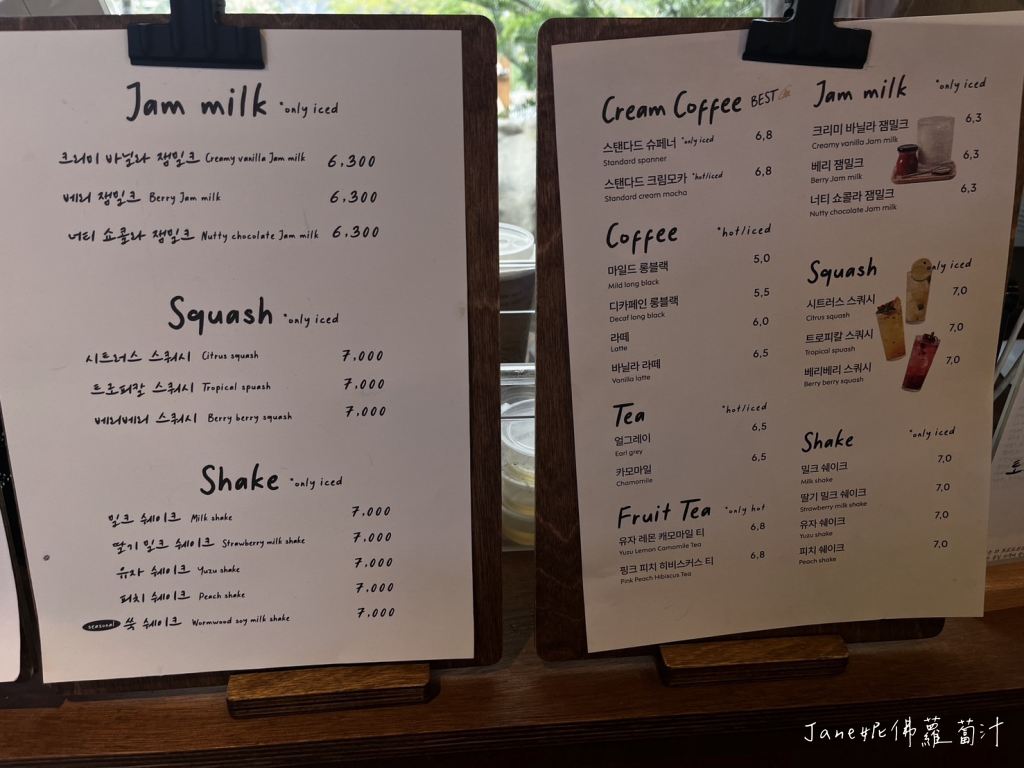 Jam milk *only iced
크리미 바닐라 잼밀크 Creamy vanilla Jam milk 6,300
베리 잼밀크 Berry Jam milk 6,300
너티 쇼콜라 잼밀크 Nutty chocolate Jam milk 6,300
Squash *only iced
시트러스 스쿼시 Citrus squash 7,000
트로피칼 스쿼시 Tropical spuash 7,000
베리베리 스쿼시 Berry berry squash 7,000
Shake *only iced
밀크 쉐이크 Milk shake 7,000
딸기 밀크 쉐이크 Strawberry milk shake 7,000
유자 쉐이크 Yuzu shake 7,000
피치 쉐이크 Peach shake 7,000
seasonal 쑥 쉐이크 Wormwood soy milk shake 7,000
Cream Coffee BEST
스탠다드 슈페너 *only iced 6,8
Standard spanner
스탠다드 크림모카 *hot/iced 6,8
Standard cream mocha
Coffee *hot/iced
마일드 롱블랙 5,0
Mild long black
디카페인 롱블랙 5,5
Decaf long black
라떼 6,0
Latte
바닐라 라떼 6,5
Vanilla latte
Tea *hot/iced
얼그레이 6,5
Earl grey
카모마일 6,5
Chamomile
Fruit Tea *only hot
유자 레몬 캐모마일 티 6,8
Yuzu Lemon Camomile Tea
핑크 피치 히비스커스 티 6,8
Pink Peach Hibiscus Tea
Jam milk *only iced
크리미 바닐라 잼밀크 6,3
Creamy vanilla Jam milk
베리 잼밀크 6,3
Berry Jam milk
너티 쇼콜라 잼밀크 6,3
Nutty chocolate Jam milk
Squash only iced
시트러스 스쿼시 7,0
Citrus squash
트로피칼 스쿼시 7,0
Tropical spuash
베리베리 스쿼시 7,0
Berry berry squash
Shake *only iced
밀크 쉐이크 7,0
Milk shake
딸기 밀크 쉐이크 7,0
Strawberry milk shake
유자 쉐이크 7,0
Yuzu shake
피치 쉐이크 7,0
Peach shake
Jane妮佛蘿蔔汁